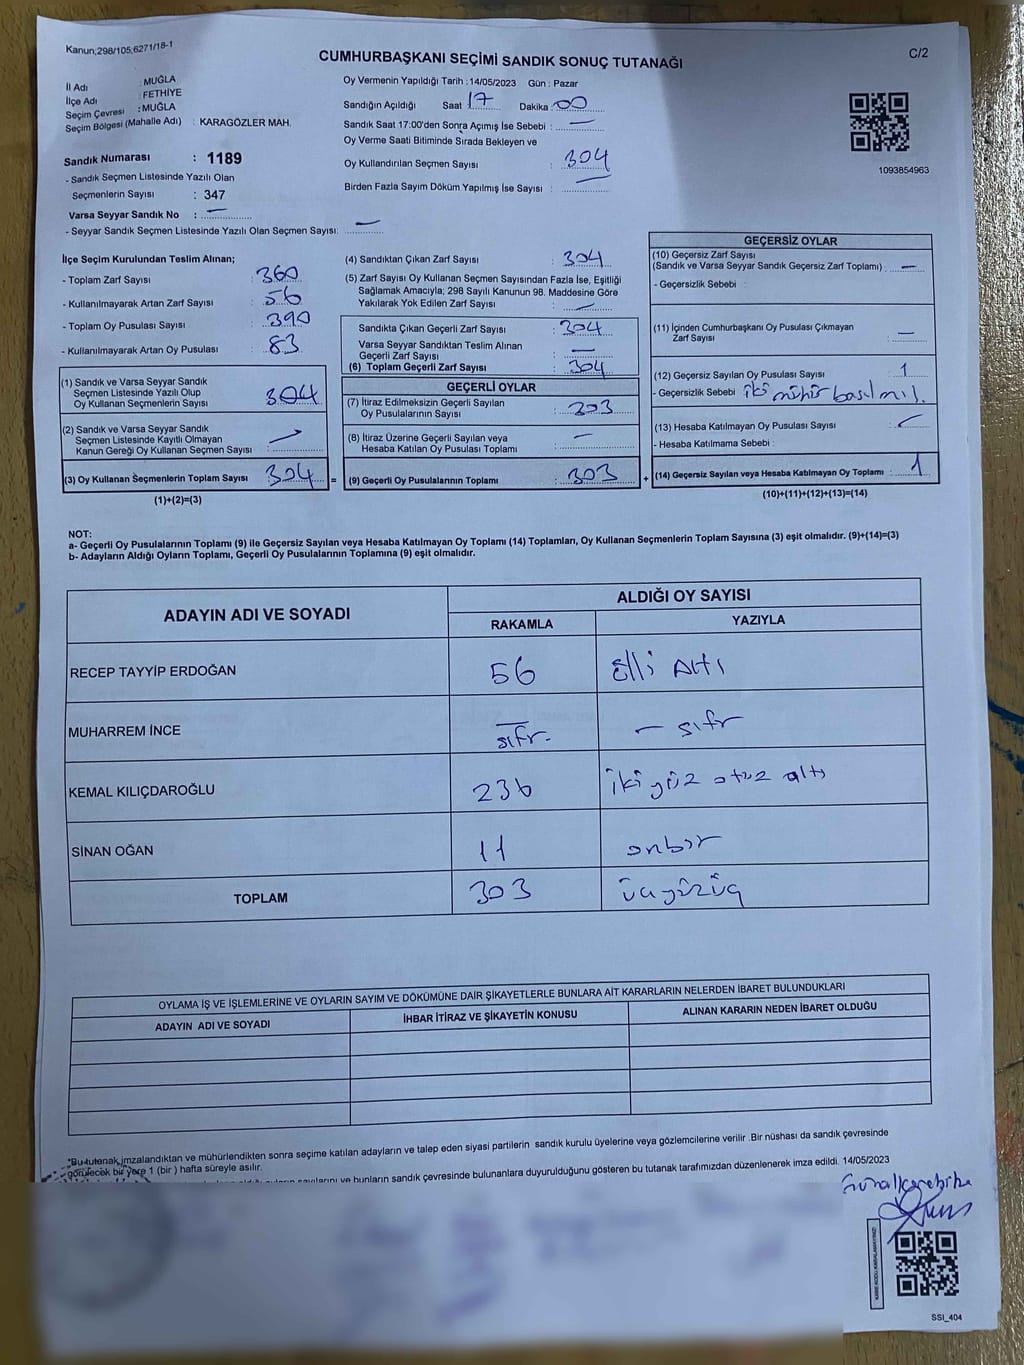 Kanun;298/105;6271/18-1
C/2
CUMHURBAŞKANI SEÇİMİ SANDIK SONUÇ TUTANAĞI
İl Adı : MUĞLA
İlçe Adı : FETHİYE
Seçim Çevresi : MUĞLA
Seçim Bölgesi (Mahalle Adı) : KARAGÖZLER MAH.
Sandık Numarası : 1189
- Sandık Seçmen Listesinde Yazılı Olan
Seçmenlerin Sayısı : 347
Varsa Seyyar Sandık No : —
- Seyyar Sandık Seçmen Listesinde Yazılı Olan Seçmen Sayısı: —
Oy Vermenin Yapıldığı Tarih : 14/05/2023 Gün : Pazar
Sandığın Açıldığı Saat 17 Dakika 00
Sandık Saat 17:00'den Sonra Açımış İse Sebebi : —
Oy Verme Saati Bitiminde Sırada Bekleyen ve
Oy Kullandırılan Seçmen Sayısı : 304
Birden Fazla Sayım Döküm Yapılmış İse Sayısı : —
1093854963
İlçe Seçim Kurulundan Teslim Alınan;
- Toplam Zarf Sayısı : 360
- Kullanılmayarak Artan Zarf Sayısı : 56
- Toplam Oy Pusulası Sayısı : 390
- Kullanılmayarak Artan Oy Pusulası : 83
(1) Sandık ve Varsa Seyyar Sandık
Seçmen Listesinde Yazılı Olup
Oy Kullanan Seçmenlerin Sayısı : 304
(2) Sandık ve Varsa Seyyar Sandık
Seçmen Listesinde Kayıtlı Olmayan
Kanun Gereği Oy Kullanan Seçmen Sayısı : —
(3) Oy Kullanan Seçmenlerin Toplam Sayısı : 304 =
(1)+(2)=(3)
(4) Sandıktan Çıkan Zarf Sayısı : 304
(5) Zarf Sayısı Oy Kullanan Seçmen Sayısından Fazla İse, Eşitliği
Sağlamak Amacıyla; 298 Sayılı Kanunun 98. Maddesine Göre
Yakılarak Yok Edilen Zarf Sayısı : —
Sandıkta Çıkan Geçerli Zarf Sayısı : 304
Varsa Seyyar Sandıktan Teslim Alınan
Geçerli Zarf Sayısı : —
(6) Toplam Geçerli Zarf Sayısı : 304
GEÇERLİ OYLAR
(7) İtiraz Edilmeksizin Geçerli Sayılan
Oy Pusulalarının Sayısı : 303
(8) İtiraz Üzerine Geçerli Sayılan veya
Hesaba Katılan Oy Pusulası Toplamı : —
(9) Geçerli Oy Pusulalarının Toplamı : 303 +
GEÇERSİZ OYLAR
(10) Geçersiz Zarf Sayısı
(Sandık ve Varsa Seyyar Sandık Geçersiz Zarf Toplamı) : —
- Geçersizlik Sebebi :
(11) İçinden Cumhurbaşkanı Oy Pusulası Çıkmayan
Zarf Sayısı : —
(12) Geçersiz Sayılan Oy Pusulası Sayısı : 1
- Geçersizlik Sebebi : iki mühür basılmış.
(13) Hesaba Katılmayan Oy Pusulası Sayısı : —
- Hesaba Katılmama Sebebi :
(14) Geçersiz Sayılan veya Hesaba Katılmayan Oy Toplamı : 1
(10)+(11)+(12)+(13)=(14)
NOT:
a- Geçerli Oy Pusulalarının Toplamı (9) ile Geçersiz Sayılan veya Hesaba Katılmayan Oy Toplamı (14) Toplamları, Oy Kullanan Seçmenlerin Toplam Sayısına (3) eşit olmalıdır. (9)+(14)=(3)
b- Adayların Aldığı Oyların Toplamı, Geçerli Oy Pusulalarının Toplamına (9) eşit olmalıdır.
ADAYIN ADI VE SOYADI ALDIĞI OY SAYISI
RAKAMLA YAZIYLA
RECEP TAYYİP ERDOĞAN 56 Elli Altı
MUHARREM İNCE — sıfr. — sıfr
KEMAL KILIÇDAROĞLU 236 iki yüz otuz altı
SİNAN OĞAN 11 onbir
TOPLAM 303 üçyüzüç
OYLAMA İŞ VE İŞLEMLERİNE VE OYLARIN SAYIM VE DÖKÜMÜNE DAİR ŞİKAYETLERLE BUNLARA AİT KARARLARIN NELERDEN İBARET BULUNDUKLARI
ADAYIN ADI VE SOYADI İHBAR İTİRAZ VE ŞİKAYETİN KONUSU ALINAN KARARIN NEDEN İBARET OLDUĞU
*Bu tutanak imzalandıktan ve mühürlendikten sonra seçime katılan adayların ve talep eden siyasi partilerin sandık kurulu üyelerine veya gözlemcilerine verilir .Bir nüshası da sandık çevresinde
görülecek bir yere 1 (bir ) hafta süreyle asılır.
sayılarını ve bunların sandık çevresinde bulunanlara duyurulduğunu gösteren bu tutanak tarafımızdan düzenlenerek imza edildi. 14/05/2023
SSI_404